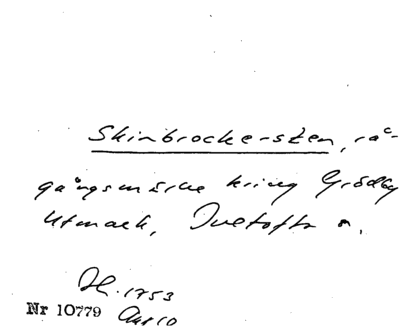 Skinbrockersten, rå-
gångsmärke kring Grödby
Utmark, Tvetofta s.
Dl. 1753
Nr 10779 Akt 10